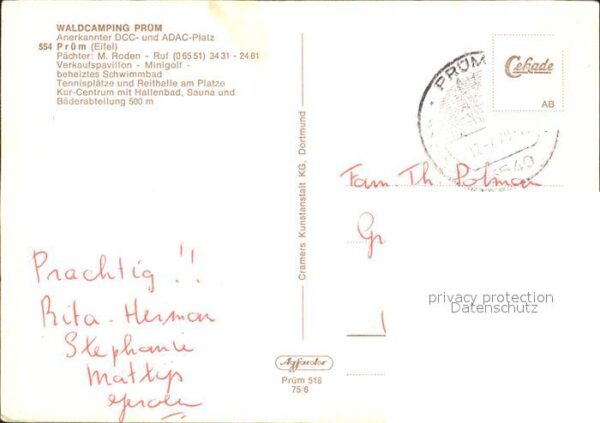 WALDCAMPING PRÜM
Anerkannter DCC- und ADAC-Platz
554 Prüm (Eifel)
Pächter: M. Roden - Ruf (0 65 51) 34 31 - 24 81
Verkaufspavillon - Minigolf -
beheiztes Schwimmbad
Tennisplätze und Reithalle am Platze
Kur-Centrum mit Hallenbad, Sauna und
Bäderabteilung 500 m
PRÜM
5540
Cekade
AB
Cramers Kunstanstalt KG, Dortmund
Fam. Th. Solman
Gr
Prachtig !!
Rita - Herman
Stephanie
Mattijs
Jeroen
privacy protection
Datenschutz
Agfacolor
Prüm 518
75/6